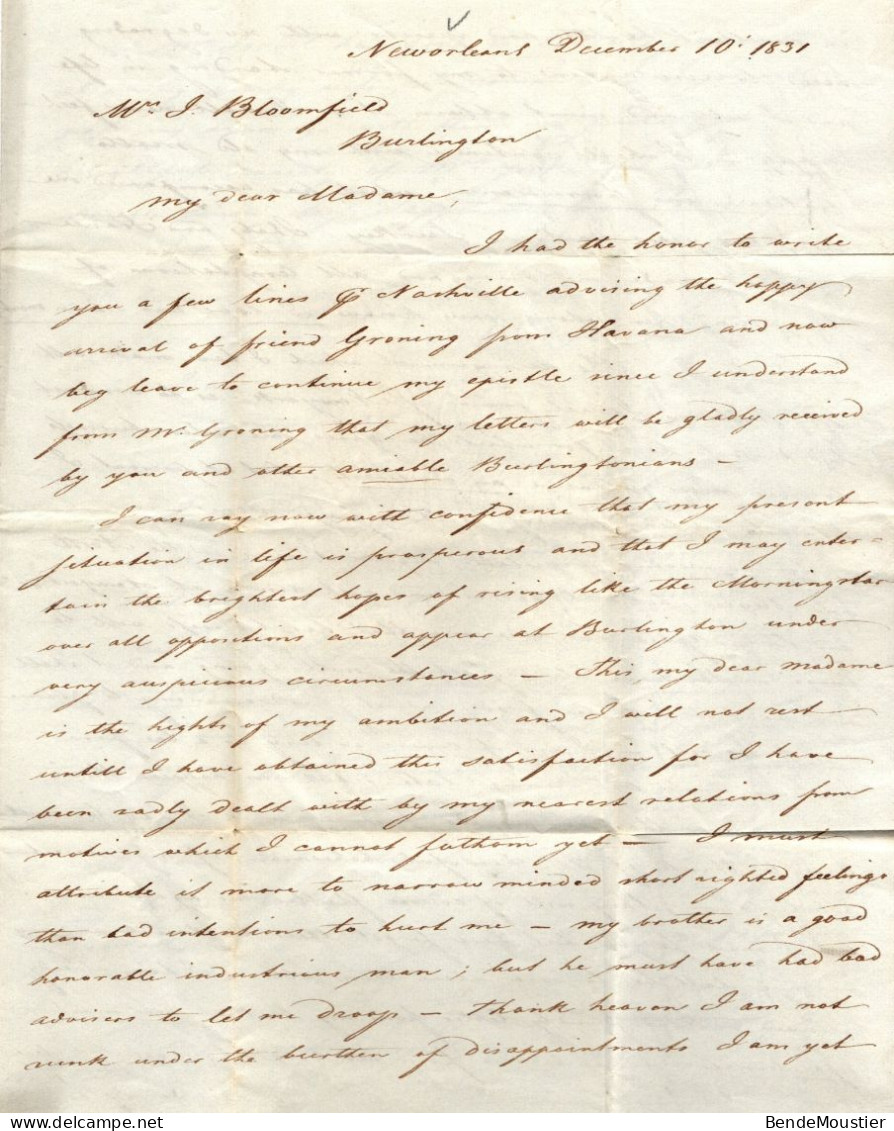 Neworleans December 10. 1831
Mrs. J. Bloomfield
Burlington
My dear Madame,
I had the honor to write
you a few lines pr Nashville advising the happy
arrival of friend Groning from Havana and now
beg leave to continue my epistle since I understand
from Mr. Groning that my letters will be gladly received
by you and other amiable Burlingtonians –
I can say now with confidence that my present
situation in life is prosperous and that I may enter=
tain the brightest hopes of rising like the Morningstar
over all oppositions and appear at Burlington under
very auspicious circumstances – This, my dear madame
is the hights of my ambition and I will not rest
untill I have obtained this satisfaction for I have
been sadly dealt with by my nearest relations from
motives which I cannot fathom yet – I must
attribute it more to narrow minded short sighted feelings
than bad intentions to hurt me – my brother is a good
honorable industrious man; but he must have had bad
advisers to let me droop – thank heaven I am not
sunk under the burthen of disappointments I am yet
www.delcampe.net
BendeMoustier